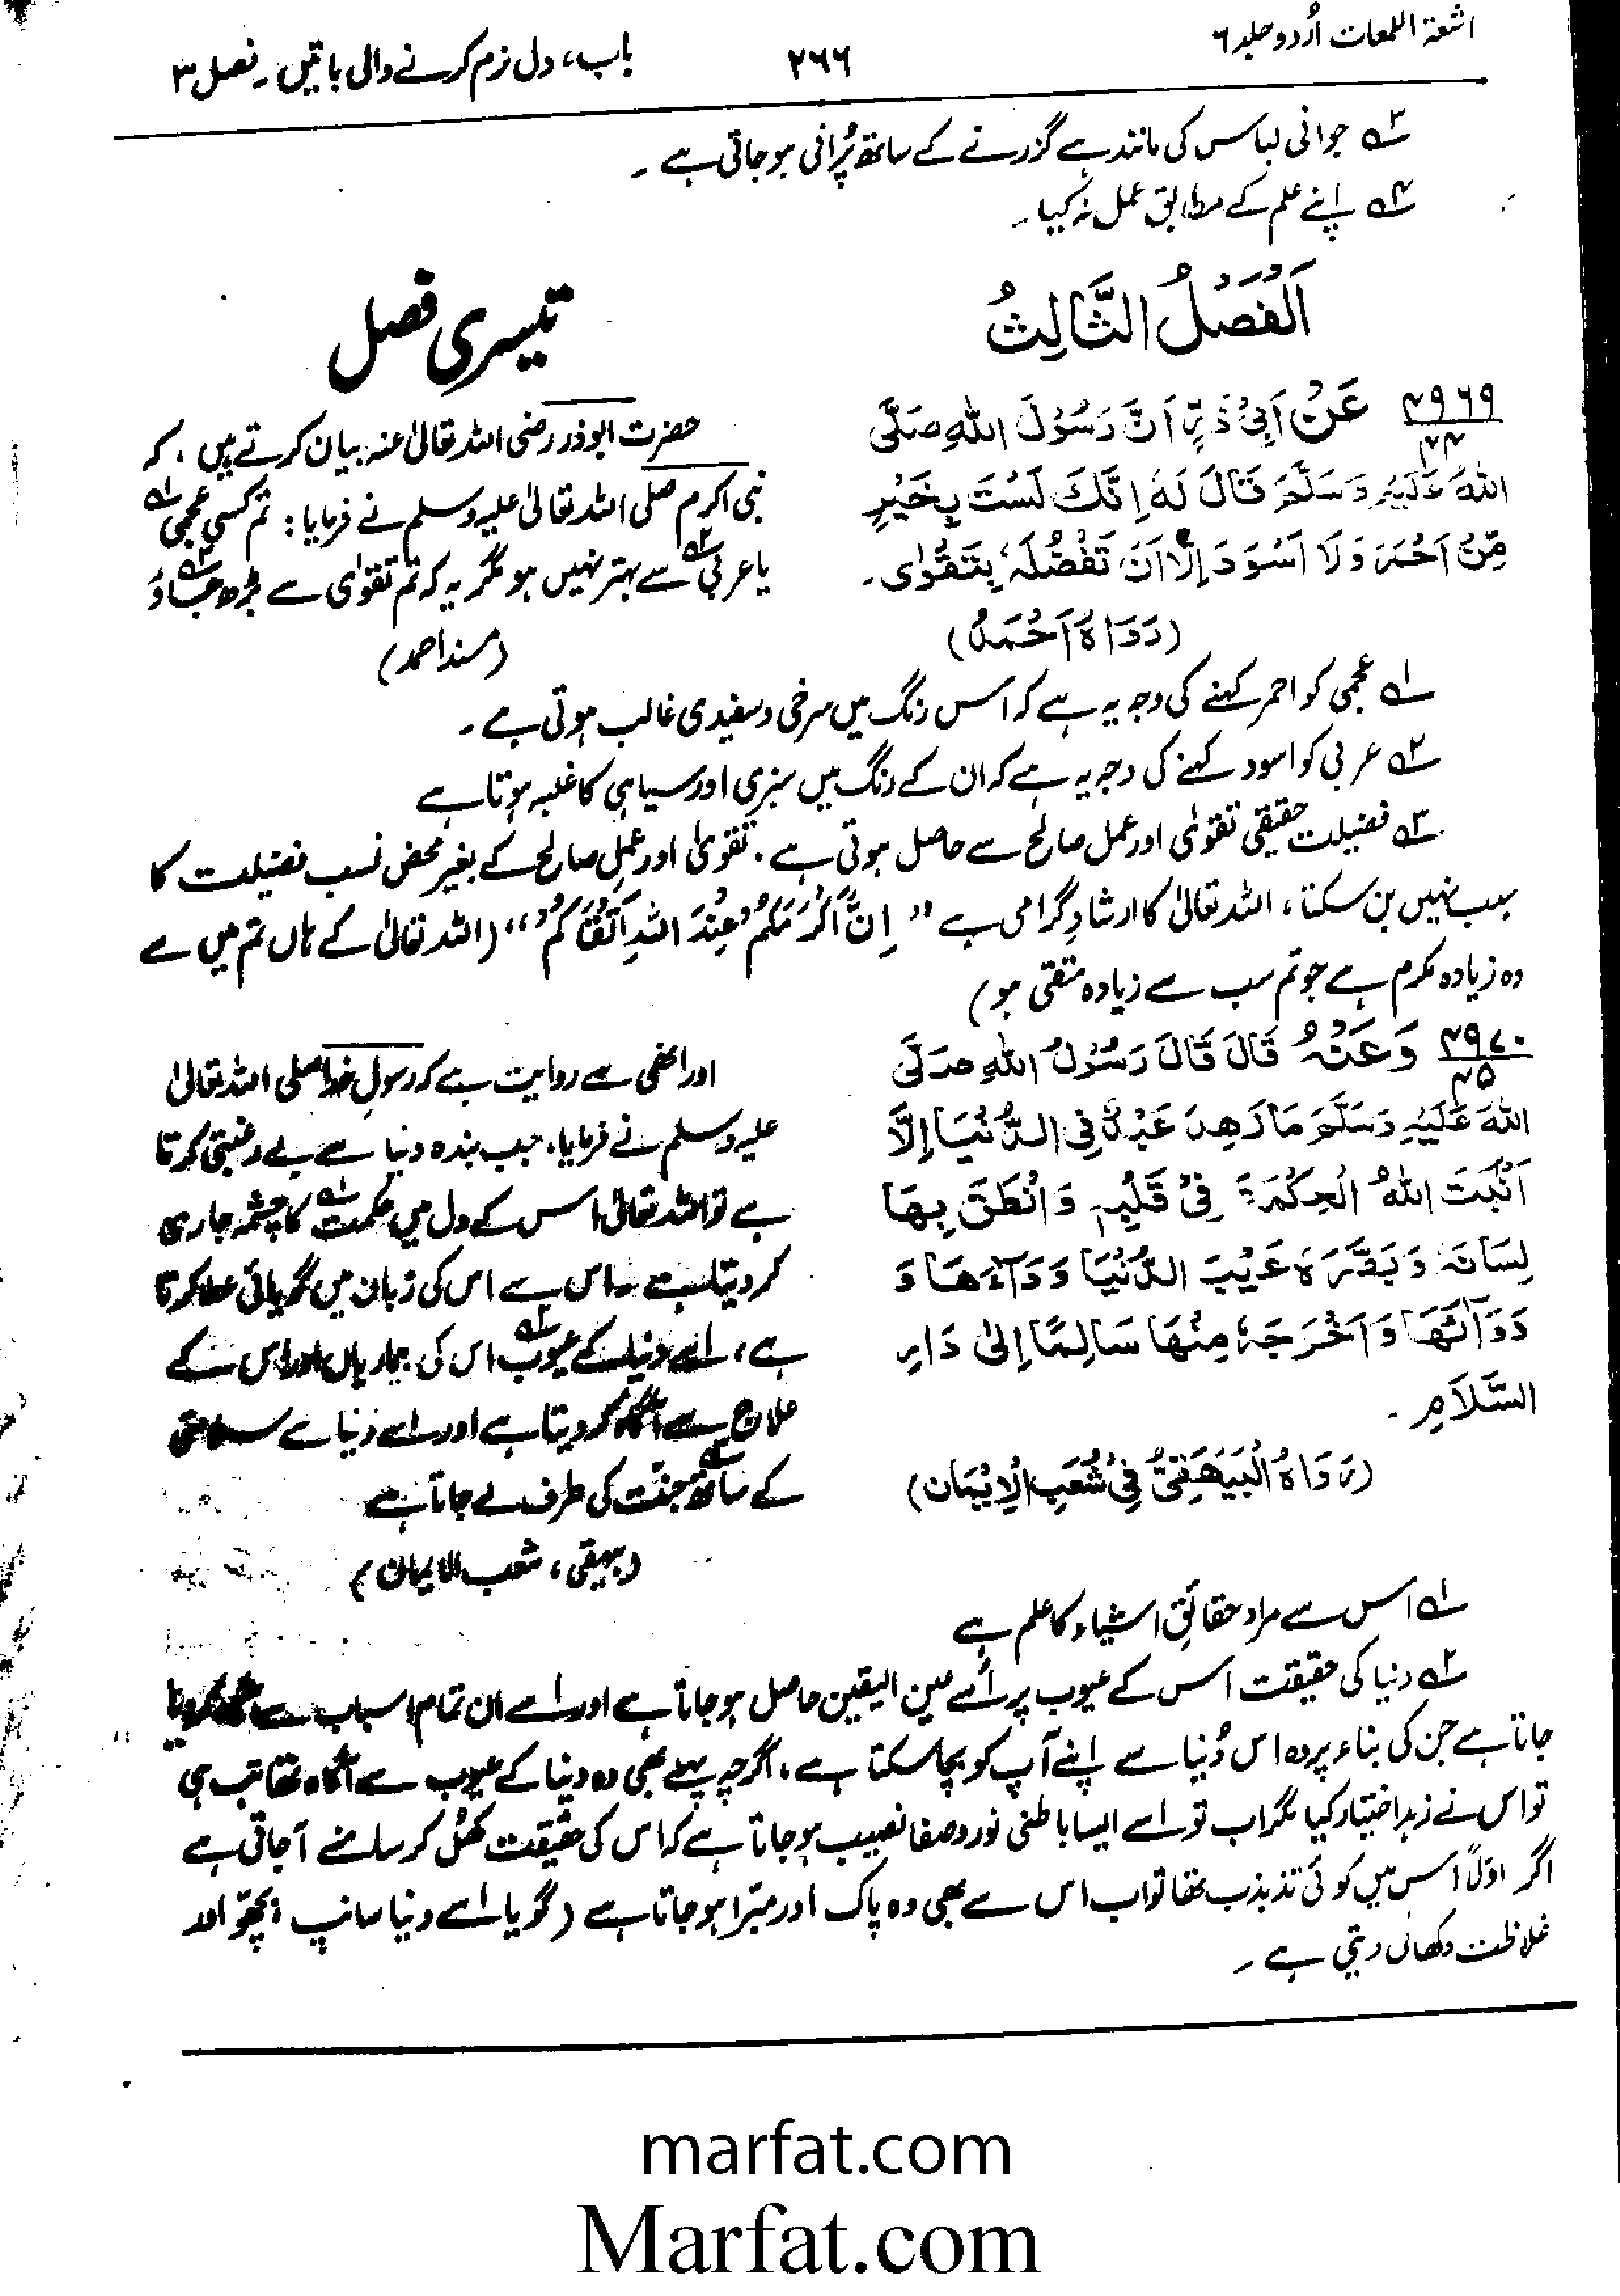 اشعۃ اللمعات اُردو جلد ۶
۲۶۶
باب، دل نرم کرنے والی باتیں۔ فصل ۳
۳؎ جوانی لباس کی مانند ہے گزرنے کے ساتھ پُرانی ہو جاتی ہے۔
۴؎ اپنے علم کے مطابق عمل نہ کیا۔
اَلْفَصْلُ الثَّالِثُ
۴۹۶۹
۴۴
عَنْ اَبِیْ ذَرٍّ اَنَّ رَسُوْلَ اللہِ صَلَّی
اللہُ عَلَیْہِ وَسَلَّمَ قَالَ لَہٗ اِنَّکَ لَسْتَ بِخَیْرٍ
مِّنْ اَحْمَرَ وَلَا اَسْوَدَ اِلَّا اَنْ تَفْضُلَہٗ بِتَقْوٰی۔
(رَوَاہُ اَحْمَدُ)
تیسری فصل
حضرت ابوذر رضی اللہ تعالیٰ عنہ بیان کرتے ہیں، کہ
نبی اکرم صلی اللہ تعالیٰ علیہ وسلم نے فرمایا: تم کسی عجمی۱؎
یا عربی۲؎ سے بہتر نہیں ہو مگر یہ کہ تم تقوٰی سے بڑھ جاؤ۳؎
(مسند احمد)
۱؎ عجمی کو احمر کہنے کی وجہ یہ ہے کہ اس رنگ میں سرخی و سفیدی غالب ہوتی ہے۔
۲؎ عربی کو اسود کہنے کی وجہ یہ ہے کہ ان کے رنگ میں سبزی اور سیاہی کا غلبہ ہوتا ہے
۳؎ فضیلت حقیقی تقوٰی اور عمل صالح سے حاصل ہوتی ہے۔ تقویٰ اور عملِ صالح کے بغیر محض نسب فضیلت کا
سبب نہیں بن سکتا، اللہ تعالیٰ کا ارشادِ گرامی ہے "اِنَّ اَکْرَمَکُمْ عِنْدَ اللہِ اَتْقَاکُمْ" (اللہ تعالیٰ کے ہاں تم میں سے
وہ زیادہ مکرم ہے جو تم سب سے زیادہ متقی ہو)
۴۹۷۰
۴۵
وَعَنْہُ قَالَ قَالَ رَسُوْلُ اللہِ صَلَّی
اللہُ عَلَیْہِ وَسَلَّمَ مَا زَھِدَ عَبْدٌ فِی الدُّنْیَا اِلَّا
اَنْبَتَ اللہُ الْحِکْمَۃَ فِیْ قَلْبِہٖ وَاَنْطَقَ بِھَا
لِسَانَہٗ وَبَصَّرَہٗ عَیْبَ الدُّنْیَا وَدَآءَھَا وَ
دَوَآئَھَا وَاَخْرَجَہٗ مِنْھَا سَالِمًا اِلٰی دَارِ
السَّلَامِ۔
(رَوَاہُ الْبَیْھَقِیُّ فِیْ شُعَبِ الْاِیْمَان)
اور انہی سے روایت ہے کہ رسولِ خدا صلی اللہ تعالیٰ
علیہ وسلم نے فرمایا، جب بندہ دنیا سے بے رغبتی کرتا
ہے تو اللہ تعالیٰ اس کے دل میں حکمت۱؎ کا چشمہ جاری
کر دیتا ہے۔ اس سے اس کی زبان میں گویائی عطا کرتا
ہے، اسے دنیا کے عیوب۲؎ اس کی بیماریاں اور اس کے
علاج سے آگاہ کر دیتا ہے اور اسے دنیا سے سلامتی
کے ساتھ جنّت کی طرف لے جاتا ہے
(بیہقی، شعب الایمان)
۱؎ اس سے مراد حقائقِ اشیاء کا علم ہے
۲؎ دنیا کی حقیقت اس کے عیوب پر اُسے عین الیقین حاصل ہو جاتا ہے اور اسے ان تمام اسباب سے آگاہ کر دیا
جاتا ہے جن کی بناء پر وہ اس دُنیا سے اپنے آپ کو بچا سکتا ہے، اگرچہ پہلے بھی وہ دنیا کے عیوب سے آگاہ تھا تب ہی
تو اس نے زہد اختیار کیا مگر اب تو اسے ایسا باطنی نور و صفا نصیب ہو جاتا ہے کہ اس کی حقیقت کھُل کر سامنے آ جاتی ہے
اگر اوّلاً اس میں کوئی تذبذب تھا تو اب اس سے بھی وہ پاک اور مبّرا ہو جاتا ہے (گویا اسے دنیا سانپ، بچھّو اور
غلاظت دکھائی دیتی ہے۔
marfat.com
Marfat.com